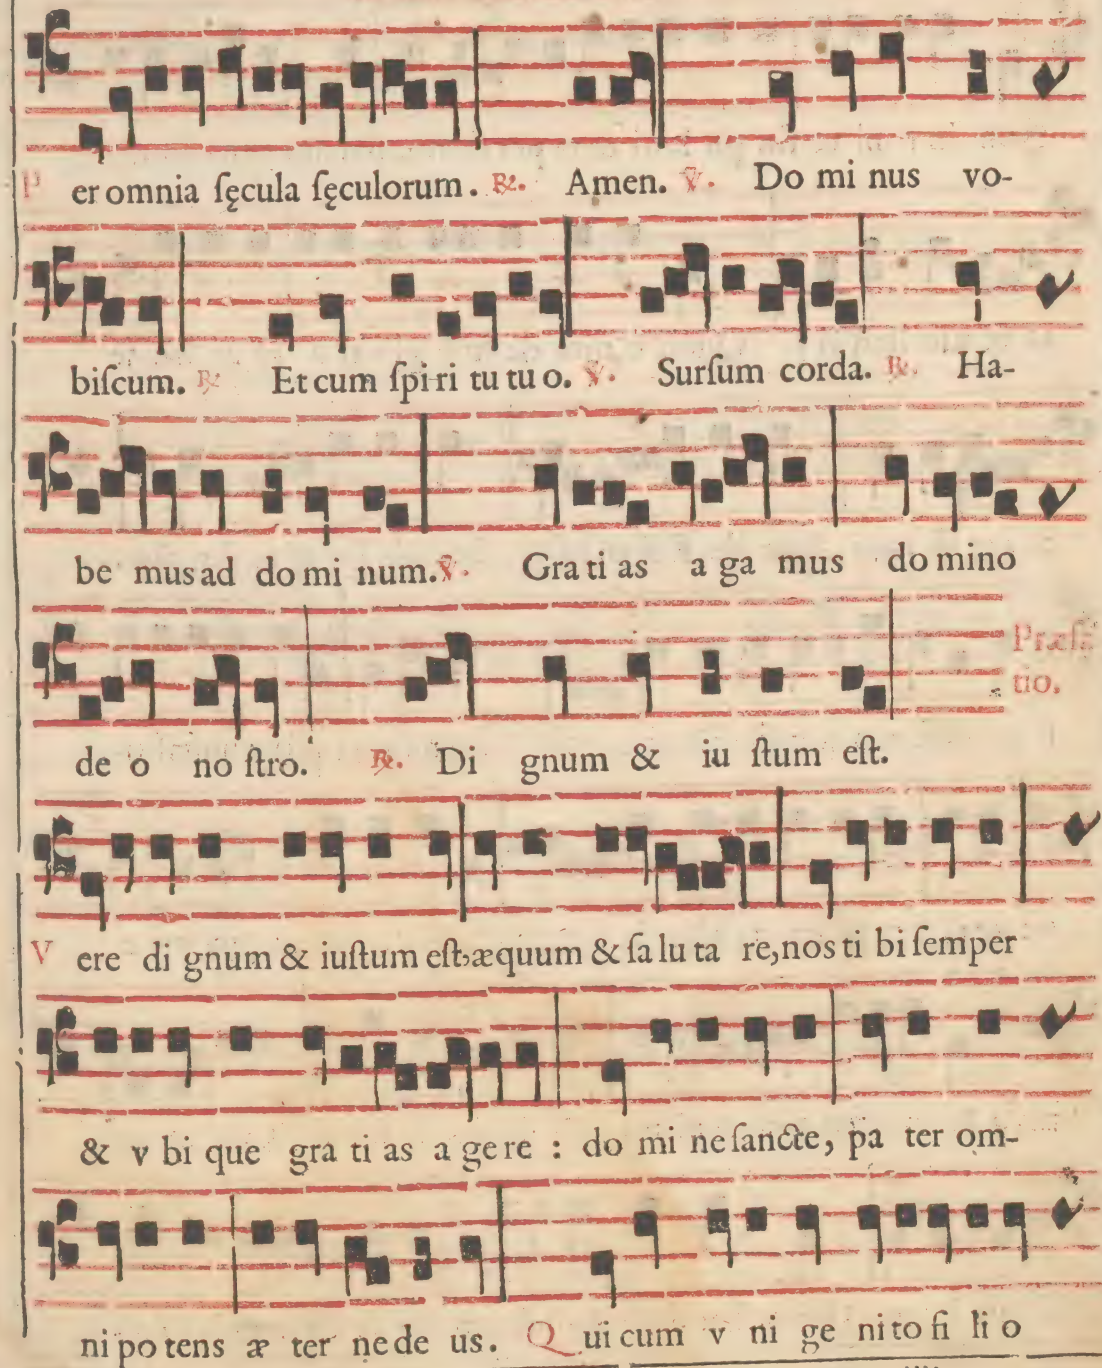 Per omnia ſęcula ſęculorum. ℟. Amen. ℣. Do mi nus vo-
biſcum. ℟ Et cum ſpi ri tu tu o. ℣. Surſum corda. ℟. Ha-
be mus ad do mi num. ℣. Gra ti as a ga mus do mino
Præfa
tio.
de o no ſtro. ℟. Di gnum & iu ſtum eſt.
Vere di gnum & iuſtum eſt, æquum & ſa lu ta re, nos ti bi ſemper
& v bi que gra ti as a gere : do mi ne ſancte, pa ter om-
ni po tens æ ter ne de us. Qui cum v ni ge ni to fi li o